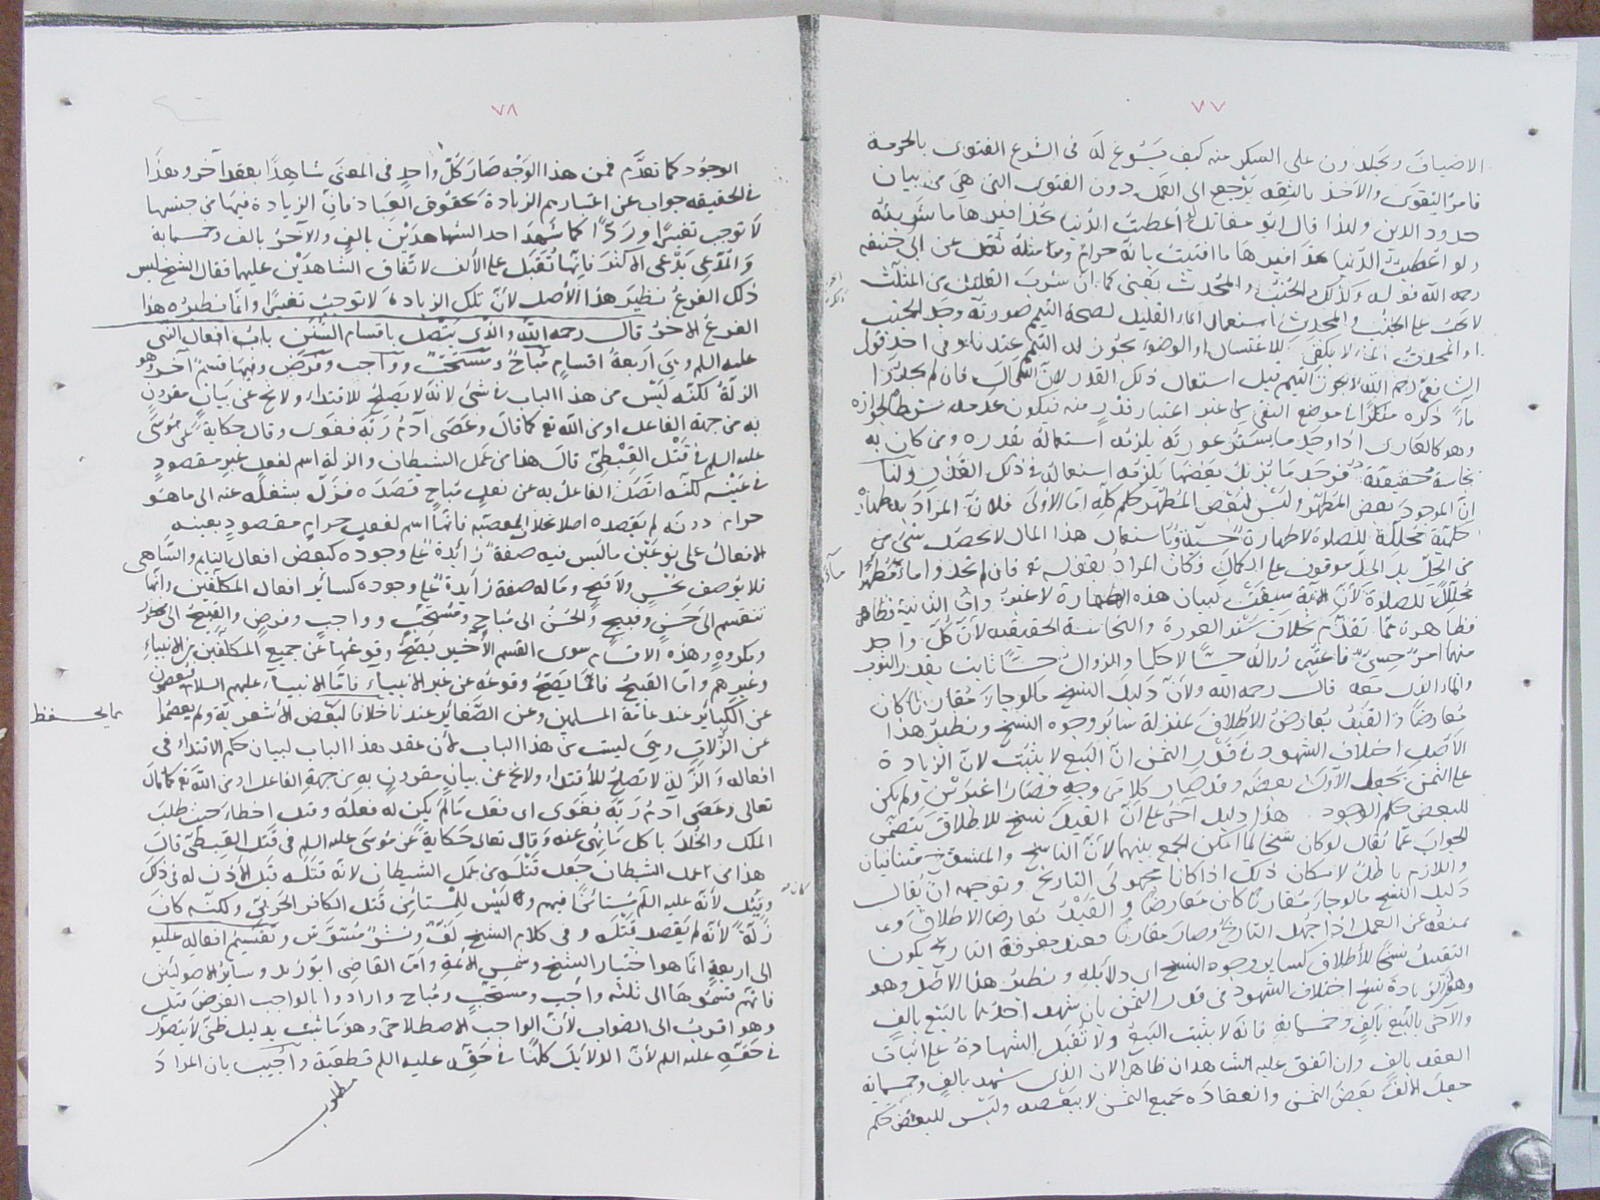 ٧٧
الاضياف ويجلدون على السكر منه كيف يسوغ له فى الشرع الفتوى بالحرمة
فامر التقوى والاخذ بالثقة يرجع الى العمل دون الفتوى التى هى من بيان
حدود الدين ولهذا قال ابو مقاتل لو اعطيت الدنيا بحذافيرها ما شربته
ولو اعطيت الدنيا بحذافيرها ما افتيت بانه حرام وما مثله نقل عن ابى حنيفة
رحمه الله قوله وكذلك الجنب والمحدث يعنى كما ان شرب القليل من المثلث
لا يجب على الجنب والمحدث استعمال الماء القليل لصحة التيمم صورته وجد الجنب
او المحدث ما لا يكفى للاغتسال او الوضوء يجوز له التيمم عندنا وفى احد قول
الشافعى رحمه الله لا يجوز التيمم قبل استعمال ذلك القدر لان الله تعالى قال فان لم تجدوا
ماء ذكره منكرا فى موضع النفى
وهو كالعارى اذا وجد ما يستر عورته يلزمه استعماله بقدره ومن كان به
نجاسة حقيقية فوجد ما يزيل بعضها يلزمه استعماله فى ذلك القدر ولنا
ان الموجود بعض المطهر وليس لبعض المطهر حكم كله اما الاولى فلان المراد به طهارة
حكمية محللة للصلوة لا طهارة حسية وباستعمال هذا المال لا يحصل شئ من
من الحل بل الحل موقوف على الكمال وكان المراد بقوله تع فان لم تجدوا ماء مطهرا
محللا للصلوة لان الآية سيقت لبيان هذه الطهارة لا غير واما الثانية فظاهر
فظاهرة مما تقدم بخلاف ستر العورة والنجاسة الحقيقية لان كل واحد
منهما امر حسى فاعتبر زواله حسا لا حكما والزوال حسا ثابت بقدر الثوب
والماء الذى معه قال رحمه الله ولان دليل النسخ ما لو جاء مقارنا كان
معارضا والقيد يعارض الاطلاق بمنزلة سائر وجوه النسخ ونظير هذا
الاصل اختلاف الشهود فى قدر الثمن ان البيع لا يثبت لان الزيادة
على الثمن يجعل الاول بعضه وقد صار كلا من وجه فصارا غيرين ولم يكن
للبعض حكم الوجود هذا دليل آخر على ان القيد نسخ للاطلاق يتضمن
الجواب عما يقال لو كان نسخا لما امكن الجمع بينهما لان الناسخ والمنسوخ متنافيان
واللازم باطل لامكان ذلك اذا كانا مجهولى التاريخ وتوجيهه ان يقال
دليل النسخ ما لو جاء مقارنا كان معارضا والقيد يعارض الاطلاق وما
يمنعه عن العمل اذا جهل التاريخ وصار مقارنا وعند معرفة التاريخ يكون
التقييد نسخا للاطلاق كسائر وجوه النسخ اى دلائله ونظير هذا الاصل وهو
وهو الزيادة نسخ اختلاف الشهود فى قدر الثمن بان شهد احدهما بالبيع بالف
والآخر بالبيع بالف وخمسمائة فانه لا يثبت البيع ولا تقبل الشهادة على اثبات
العقد بالف وان اتفق عليه الشاهدان ظاهرا لان الذى شهد بالف وخمسمائة
جعل الالف بعض الثمن وانعقاده بجميع الثمن لا ببعضه وليس للبعض حكم
٧٨
الوجود كما تقدم فمن هذا الوجه صار كل واحد فى المعنى شاهدا بعقد آخر وهذا
فى الحقيقة جواب عن اعتبارهم الزيادة بحقوق العباد فان الزيادة فيها من جنسها
لا توجب تغييرا وردا كما شهد احد الشاهدين بالف والآخر بالف وخمسمائة
والمدعى يدعى الاكثر فانها تقبل على الالف لاتفاق الشاهدين عليها فقال الشيخ ليس
ذلك الفرع نظير هذا الاصل لان تلك الزيادة لا توجب تغييرا وانما نظيره هذا
الفرع الاخر قال رحمه الله والذى يتصل باقسام السنن باب افعال النبى
عليه السلم وهى اربعة اقسام مباح ومستحب وواجب وفرض وفيها قسم آخر وهو
الزلة لكنه ليس من هذا الباب فى شئ لانه لا يصلح للاقتداء ولا يخ عن بيان مقرون
به من جهة الفاعل او من الله تع كما قال وعصى آدم ربه فغوى وقال حكاية عن موسى
عليه السلم فى قتل القبطى قال هذا من عمل الشيطان والزلة اسم لفعل غير مقصود
فى عينه لكنه اتصل الفاعل به عن فعل مباح قصده فزل بشغله عنه الى ما هو
حرام لم يقصده اصلا بخلاف المعصية فانها اسم لفعل حرام مقصود بعينه
الافعال على نوعين ما ليس فيه صفة زائدة على وجوده كبعض افعال النايم والساهى
فلا يوصف بحسن ولا قبح وما له صفة زائدة على وجوده كسائر افعال المكلفين وانها
تنقسم الى حسن وقبيح والحسن الى مباح ومستحب وواجب وفرض والقبيح الى محظور
ومكروه وهذه الاقسام سوى القسم الاخير يصح وقوعها عن جميع المكلفين من الانبياء
وغيرهم واما القبيح فانما يصح وقوعه عن غير الانبياء فاما الانبياء عليهم السلام فمعصومون
عن الكبائر عند عامة المسلمين وعن الصغائر عندنا خلافا لبعض الاشعرية ولم يعصموا
عن الزلات وهى ليست من هذا الباب لان عقد هذا الباب لبيان حكم الاقتداء فى
افعاله والزلة لا تصلح للاقتداء ولا يخ عن بيان مقرون به من جهة الفاعل او من الله تع كما قال
تعالى وعصى آدم ربه فغوى اى فعل ما لم يكن له فعله وقيل اخطاء حيث طلب
الملك والخلد باكل ما نهى عنه وقال تعالى حكاية عن موسى عليه السلم فى قتل القبطى قال
هذا من عمل الشيطان جعل قتله من عمل الشيطان لانه قتله قبل الاذن له فى ذلك
وقيل لانه عليه السلم كان مستأمنا فيهم وليس للمستأمن قتل الكافر الحربى ولكنه كان
زلة لانه لم يقصد قتله وفى كلام الشيخ لف ونشر مشوش وتقسيم افعاله عليه
الى اربعة انما هو اختيار الشيخ وشمس الائمة واما القاضى ابو زيد وسائر الاصوليين
فانهم قسموها الى ثلثة واجب ومستحب ومباح وارادوا بالواجب الفرض قيل
وهو اقرب الى الصواب لان الواجب الاصطلاحى وهو ما ثبت بدليل ظنى لا يتصور
فى حقه عليه السلم لان الدلايل كلها فى حقه عليه السلم قطعية واجيب بان المراد
مما يحفظ
مطلوب